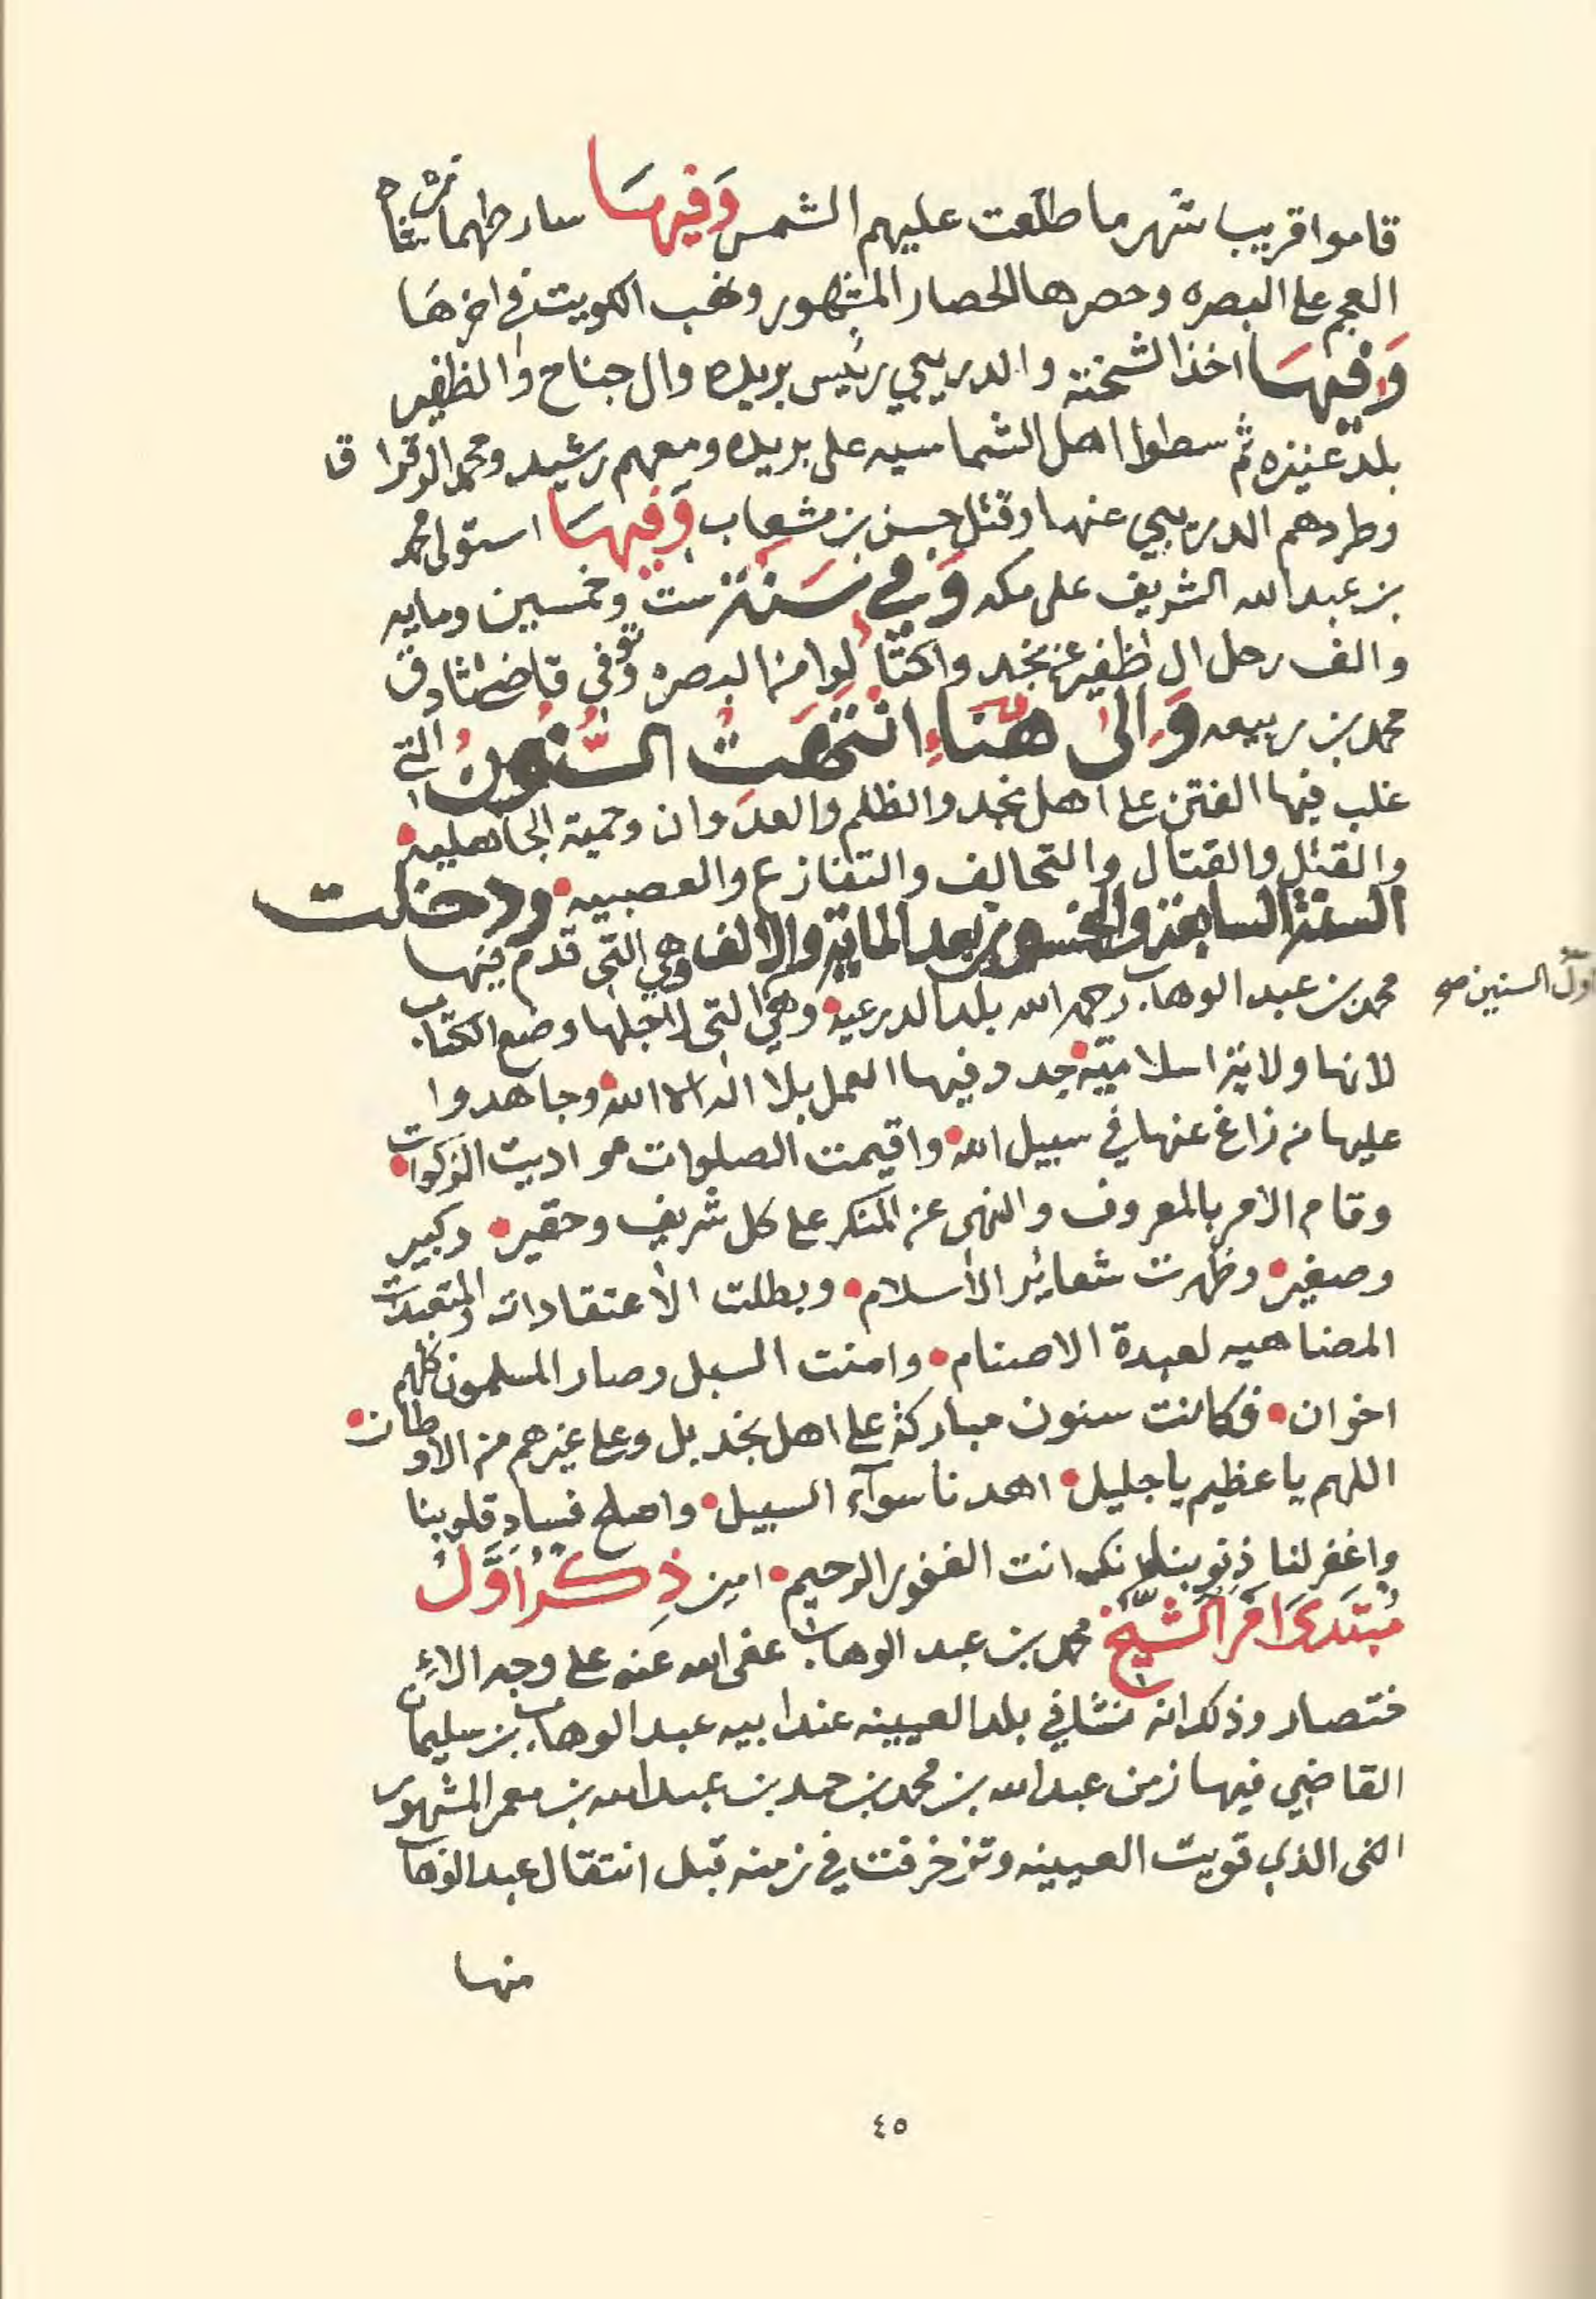 قاموا قريب شهر ما طلعت عليهم الشمس وَفيهَا سار طهماس شاه
العجم على البصره وحصرها الحصار المشهور ونهب الكويت في اخرها
وَفيهَا اخذ الشختة والدريبي رئيس بريده وال جناح والظفير
بلد عنيزه ثم سطوا اهل الشماسيه على بريده ومعهم رشيد ومحمد الوقرا
وطردهم الدريبي عنها وقتل حسن بن مشعاب وَفيهَا استولى محمد
بن عبد الله الشريف على مكه وَفي سَنة ست وخمسين ومايه
والف رحل ال ظفير عن نجد واكتالوا من البصره وتوفي قاضي ثادق
محمد بن ربيعه وَالى هنَاء انتهَتْ السُّنُونُ التي
غلب فيها الفتن على اهل نجد والظلم والعدوان وحمية الجاهليه
والقتل والقتال والتحالف والتنازع والعصبيه ودخلت
السنة السابعة والخمسون بعد الماية والالف وهي التي قدم فيها
اول السنين صح
محمد بن عبد الوهاب رحمه الله بلد الدرعيه وهي التي لاجلها وضع الكتاب
لانها ولاية اسلامية جدد فيها العمل بلا اله الا الله وجاهدوا
عليها من زاغ عنها في سبيل الله واقيمت الصلوات واديت الزكوات
وقام الامر بالمعروف والنهي عن المنكر على كل شريف وحقير وكبير
وصغير وظهرت شعائر الاسلام وبطلت الاعتقادات والمتعبدات
المضاهيه لعبدة الاصنام وامنت السبل وصار المسلمون كلهم
اخوان فكانت سنون مباركة على اهل نجد بل وعلى غيرهم من الاوطان
اللهم يا عظيم يا جليل اهدنا سوآء السبيل واصلح فساد قلوبنا
واغفر لنا ذنوبنا انك انت الغفور الرحيم امين ذِكرُ اوَّلُ
مُبتَدَى امر الشّيخ محمد بن عبد الوهاب عفى الله عنه على وجه الاء
ختصار وذكر انه نشا في بلد العيينه عند ابيه عبد الوهاب بن سليمان
القاضي فيها زمن عبد الله بن محمد بن حمد بن عبد الله بن معمر المشهور
الذي قويت العيينه وتزخرفت في زمنه قبل انتقال عبد الوهاب
منها
٤٥